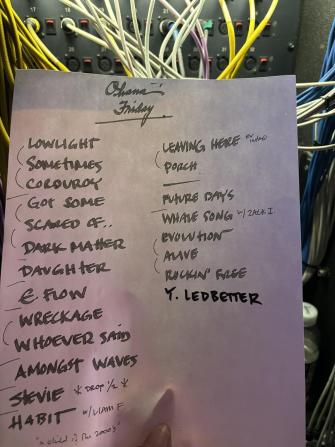 Ohana
Friday
LOWLIGHT
SOMETIMES
CORDUROY
GOT SOME
SCARED OF..
DARK MATTER
DAUGHTER
E. FLOW
WRECKAGE
WHOEVER SAID
AMONGST WAVES
STEVIE * DROP 1/2 *
HABIT W/ LIAM F
"a child of the 2000's"
LEAVING HERE
PORCH
FUTURE DAYS
WHALE SONG W/ ZACK I.
EVOLUTION
ALIVE
ROCKIN' FREE
Y. LEDBETTER